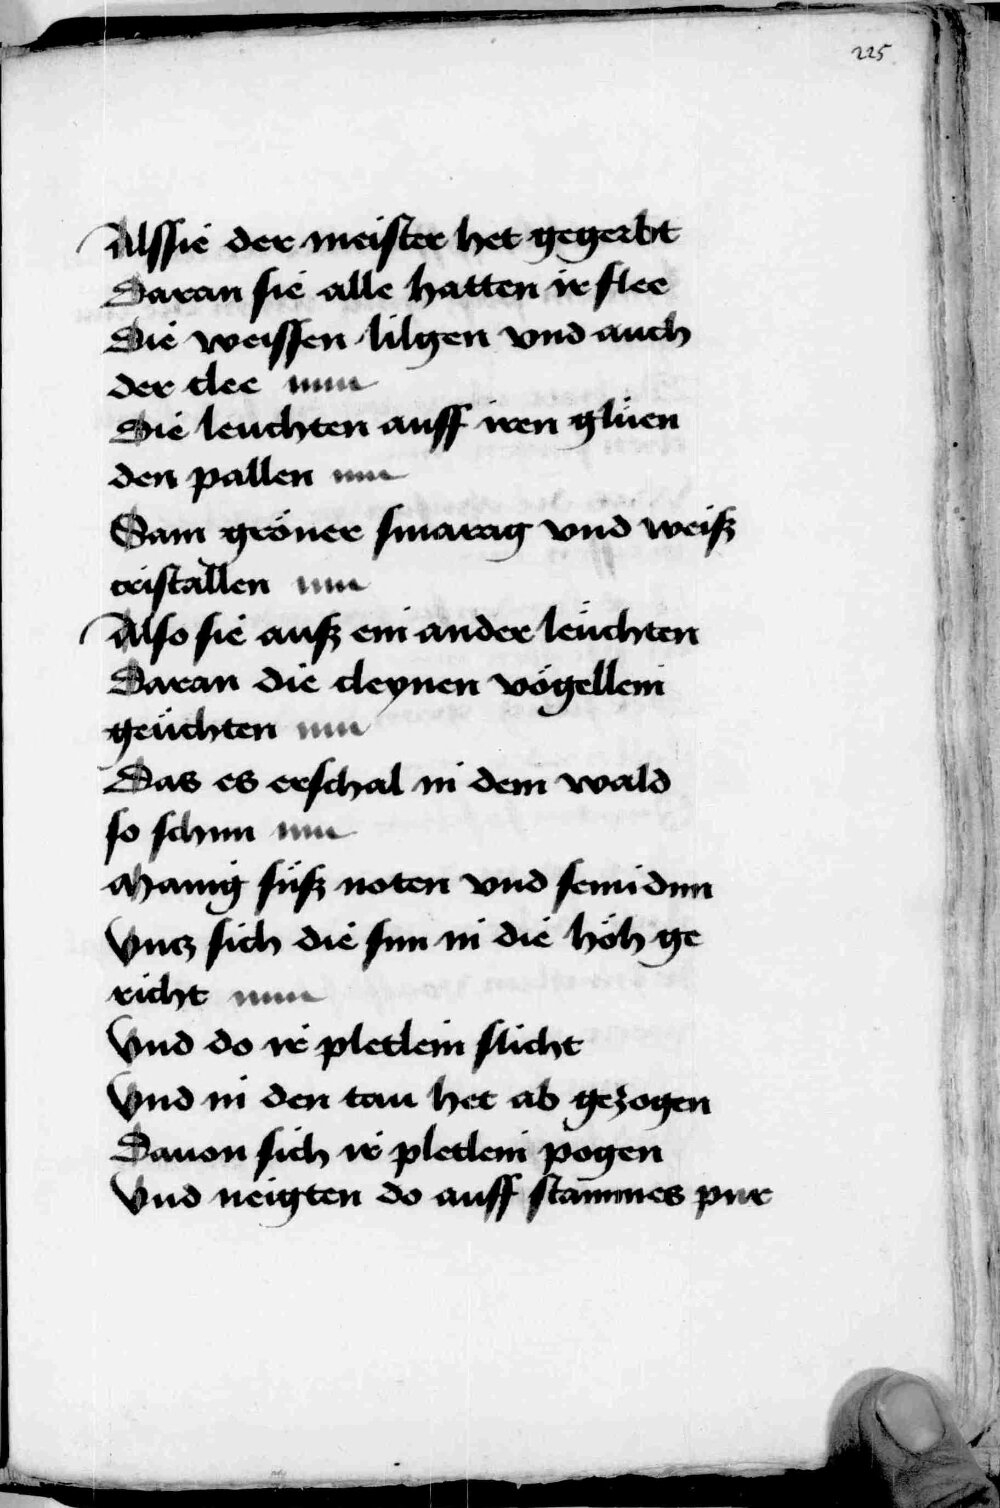 225
Alssie der meister het gegerbt
Daran sie alle hatten ir flee
Die weissen lilgen vnd auch
der clee
Die leuchten auff iren glüen
den pallen
Sam gröner smarag vnd weisz
cristallen
Also sie ausz ein ander leüchten
Daran die cleynen vögellein
geüchten
Das es erschal in dem wald
so schun
Manig süsz noten vnd semi dun
Vncz sich die sun in die höh ge
richt
Vnd do ir pletlein slicht
Vnd in den tau het ab gezogen
Dauon sich ir pletlein pogen
Vnd neigten do auff stammes pur